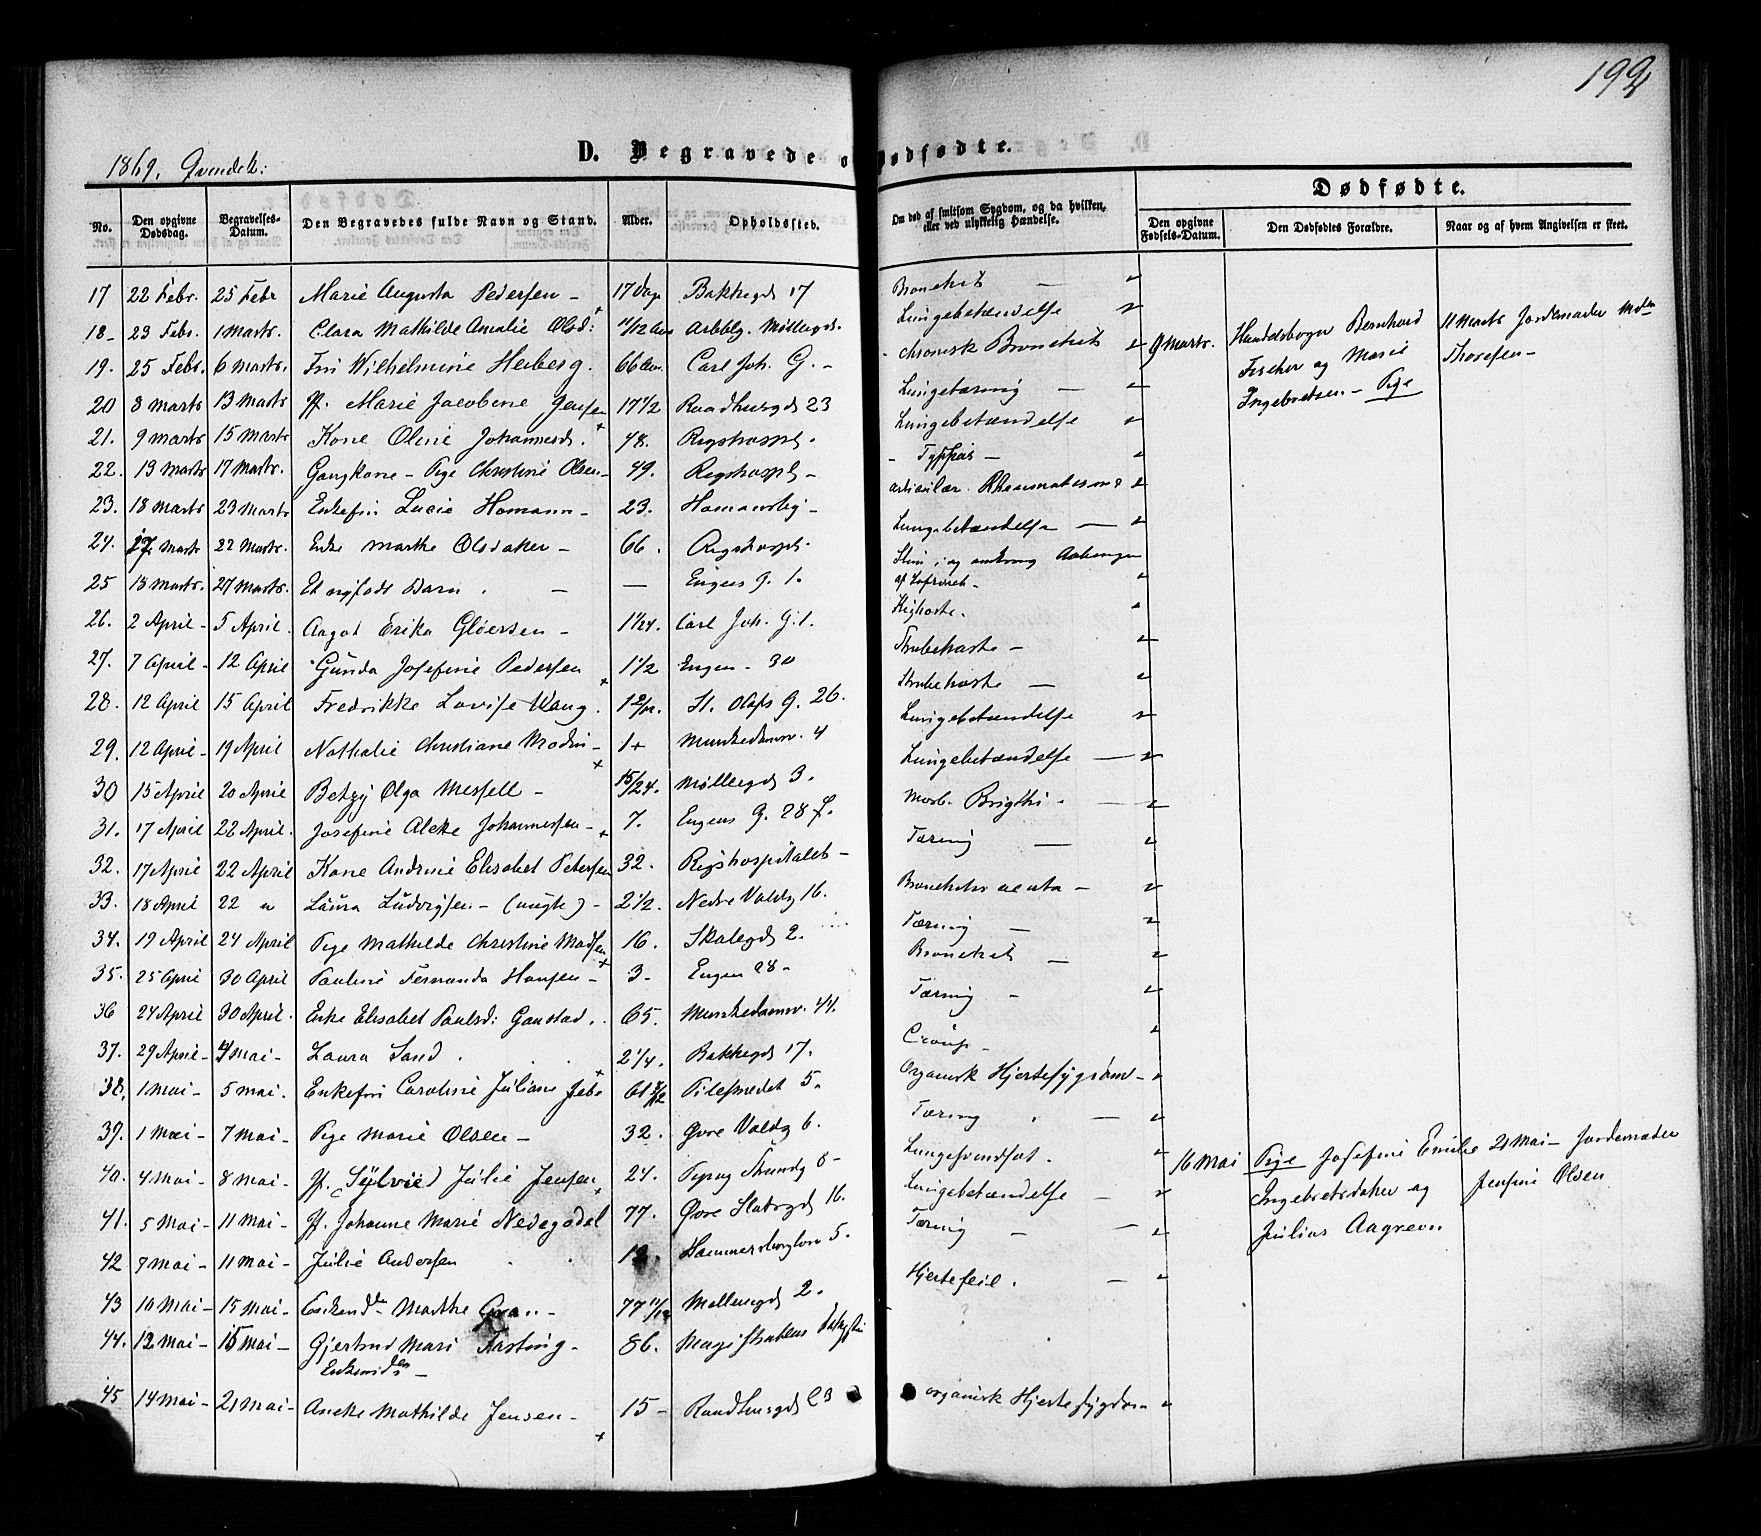 199
1869. Qvindek:
D. Begravede o
Dødfødte.
Dødfødte.
No.
Den opgivne Dødsdag.
Begravelses-Datum.
Den Begravedes fulde Navn og Stand.
Alder.
Opholdssted.
Om død af smitsom Sygdom, og da hvilken, eller ved ulykkelig Hændelse.
Den opgivne Fødsels-Datum.
Den Dødfødtes Forældre.
Naar og af hvem Angivelsen er skeet.
17 22 Febr. 25 Febr Marie Augusta Pedersen - 17 Dage Bakkegd 17 Bronchit —
18 - 23 Febr. 1 Marts. Clara Mathilde Amalie Olsd: 11/12 Aar Arbblg. Møllergd. Lungebetændelse
19. 25 Febr. 6 Marts. Frú Wilhelmine Heiberg. 66 Aar. Carl Joh. G. - chronisk Bronchit
9 Marts. Handelsbogh Bernhard 11 Marts Jordemoder
Fischer og Marie Thoresen -
Ingebretsen - Pige
20 8 Marts 13 Marts Jf. Marie Jacobine Jensen 17 1/2 Raadhusgd 23 Lungetæring —
21. 9 Marts 15 Marts Kone Oline Johannesd. 48. Rigshospt. Lungebetændelse
22. 13 Marts 17 Marts. Gangkone - Pige Christine Olsen - 49. Rigshospt - Typhus -
23. 18 Marts 23 Marts Enkefrú Lucie Homann - 23. Homansby - articulær Rheumatisme
24. 17 Marts 22 Marts. Enke Marthe Olsdaker - 66. Rigshospt. Lungebetændelse —
25 13 Marts. 27 Marts. Et nyfødt Barn. — — Engens G. 1. Slim i og omkring Aabningen
af
26. 2 April - 5 April. Aagot Erika Gløersen - 1 1/24. Carl Joh. G. 1. Kighoste.
27. 7 April - 12 April Gúnda Josefine Pedersen 1 1/2 Engen - 30 Strubehoste -
28. 12 April 15 April Fredrikke Lovise Wang. St. Olafs G. 26. Strubehoste —
29. 12 April - 19 April Nathalie Christiane - 1 + Munkedamv. 4 Lungebetændelse
30 15 April 20 April Betzy Olga - 15/24. Møllergd 3. Lungebetændelse —
31. 17 April 22 April. Josefine Johannessen - 7. Engens G. 28 Morb. Brigthi -
32. 17 April 22 April Kone Andrine Elisabet Petersen 32. Rigshospitalet - Tæring —
33. 18 April 22 " Laúra Lúdvigsen - (uægte) - 2 1/2. Nedre Voldg 16. Bronchitis acuta -
34. 19 April 24 April Pige Mathilde Christine Madsen 16. Skolegd 2. Tæring —
35. 25 April 30 April Pauline Fernanda Hansen - 3 - Engen 28 - Bronchit —
36 24 April 30 April. Enke Elisabet Paulsd: Gaustad. 65. Munkedamv. 44. Tæring -
37. 29 April - 4 Mai - Laura Sand. 2 1/4. Bakkegd 17. Croup -
38. 1 Mai - 5 Mai. Enkefrú Caroline Júliane 61 Pilestrædet 5. Organisk Hjertesygdom -
39. 1 Mai - 7 Mai - Pige Marie Olsen - 32. Øvre Voldg 6. Tæring —
40. 4 Mai - 8 Mai - Jf. (Sylvie) Júlie Jensen 24. 8 - Lungesvindsot.
16 Mai Pige Josefine Emilie 21 Mai - Jordemoder
Ingebretsdaker og Jensine Olsen
Julius Aagren.
41. 5 Mai - 11 Mai - Jf. Johanne Marie Nedegodel 77. Øvre Slotsgd 16. Lungebetændelse -
42 7 Mai - 11 Mai - Júlie Andersen 12. 5. Tæring —
43 10 Mai - 15 Mai - Marthe Gran - 77 11/12 Møllergd 2. Hjertefeil. —
44. 12 Mai - 15 Mai - Gjertrud Mari Fasting - 86. Magistratens
45 14 Mai - 21 Mai - Mathilde Jensen - 15 - Raadhusgd 23 organisk Hjertesygdom